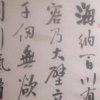 海納百川有
容乃大壁立
千仞無欲